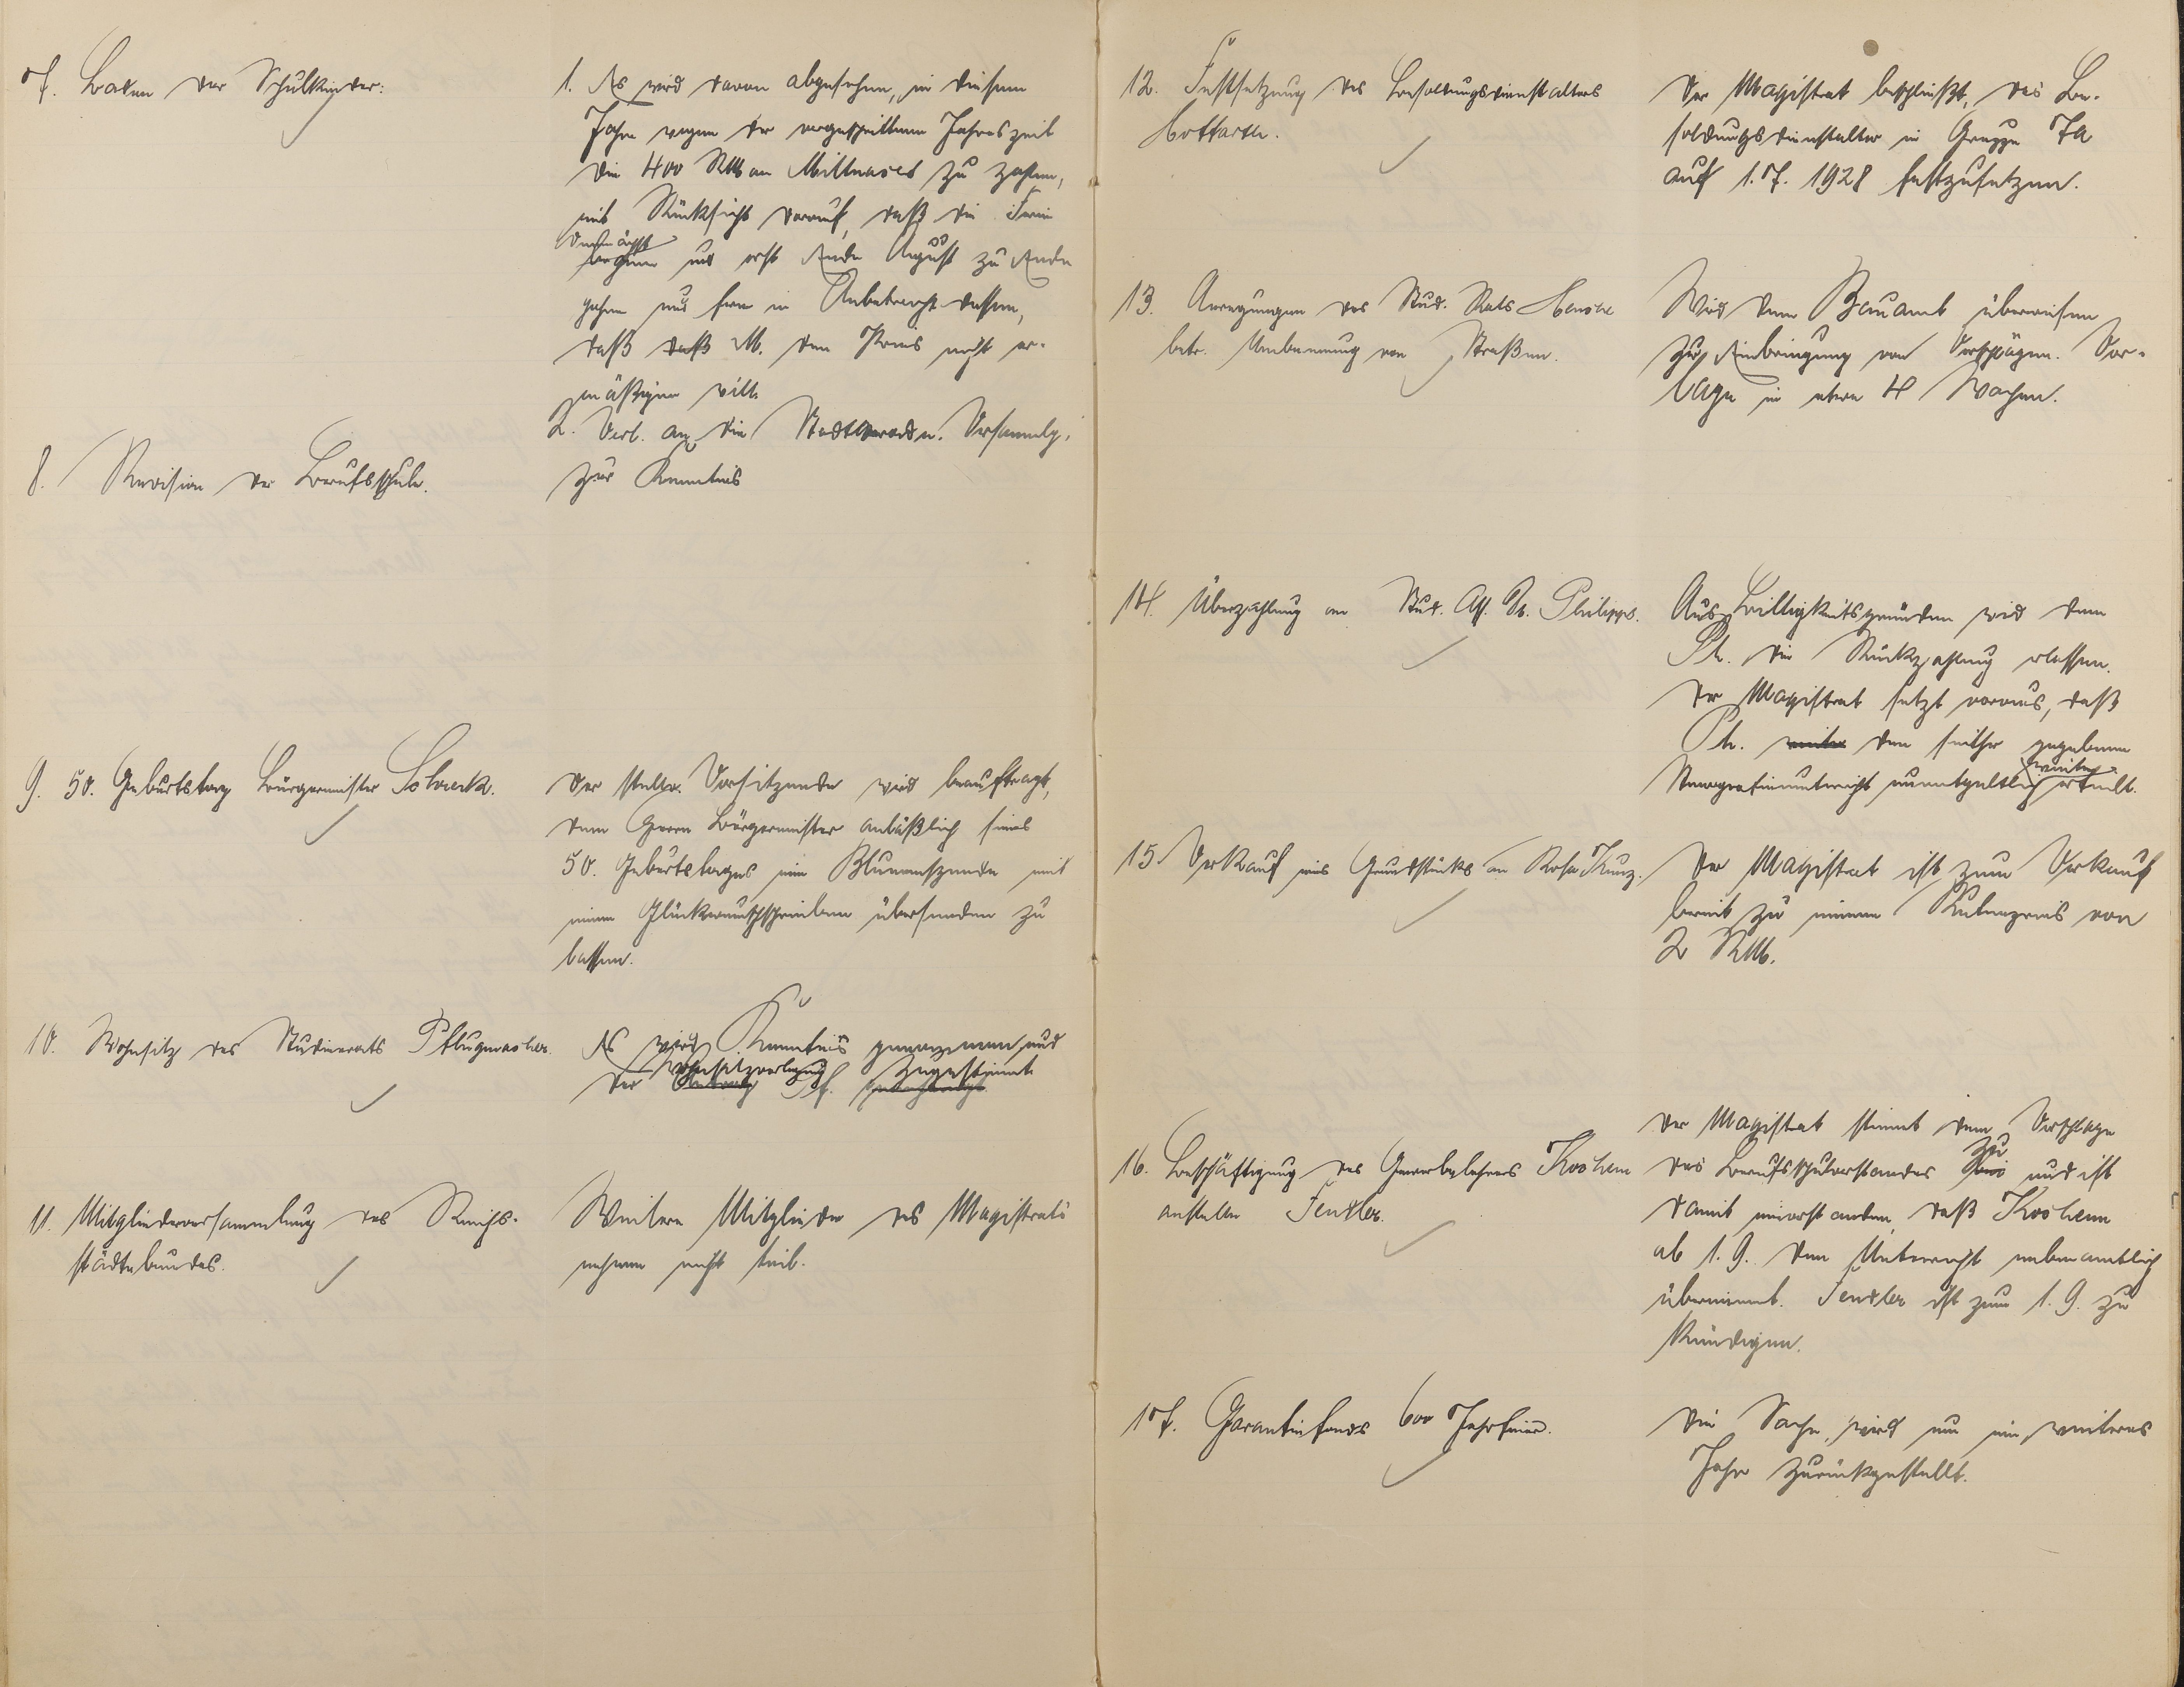 7. Baden der Schulkinder:
1. Es wird davon abgesehen, in diesem
Jahre wegen der vorgeschrittenen Jahreszeit
die 400 RM an Mittnacht zu zahlen,
mit Rücksicht darauf, daß die Ferien
demnächst
beginnen und erst Ende August zu Ende
gehen und ferner in Anbetracht dessen,
daß daß M. den Preis nicht er-
mäßigen will.
2. Verf. an die Stadtverordn. Versammlg.
zur Kenntnis
8. Revision der Berufsschule.
9. 50. Geburtstag Bürgermeister
Der stellv. Vorsitzende wird beauftragt,
dem Herrn Bürgermeister anläßlich seines
50. Geburtstages eine Blumenspende mit
einem Glückwunschschreiben übersenden zu
lassen.
10. Wohnsitz des Studienrats Pflugmacher.
Es wird Kenntnis genommen und
Wohnsitzverlegung zugestimmt
der Antrag Pf. genehmigt
11. Mitgliederversammlung des Reichs-
städtebundes.
Weitere Mitglieder des Magistrats
nehmen nicht teil.
12. Festsetzung des Besoldungsdienstalters
Der Magistrat beschließt, das Be-
soldungsdienstalter in Gruppe 7a
auf 1. 7. 1928 festzusetzen.
13. Anregungen des Stud. Rats
betr. Umbenennung von Straßen.
Wird dem Bauamt überwiesen
zur Einbringung von Vorschlägen. Vor-
lage in etwa 4 Wochen.
14. Überzahlung an Stud. Ass. Dr. Philipps.
Aus Billigkeitsgründen wird dem
Ph. die Rückzahlung erlassen.
Der Magistrat setzt voraus, daß
Ph. weiter den seither gegebenen
weiter
Stenografieunterricht unentgeltlich erteilt.
15. Verkauf eines Grundstücks an Rosa Kunz.
Der Magistrat ist zum Verkauf
bereit zu einem Rutenpreis von
2 RM.
16. Beschäftigung des Gewerbelehrers Koshem
anstelle Fendler.
Der Magistrat stimmt dem Vorschlage
des Berufsschulvorstandes zu und ist
damit einverstanden, daß Koshem
ab 1. 9. den Unterricht nebenamtlich
übernimmt. Fendler ist zum 1. 9. zu
kündigen.
17. Garantiefonds 600 Jahrfeier.
Die Sache wird um ein weiteres
Jahr zurückgestellt.